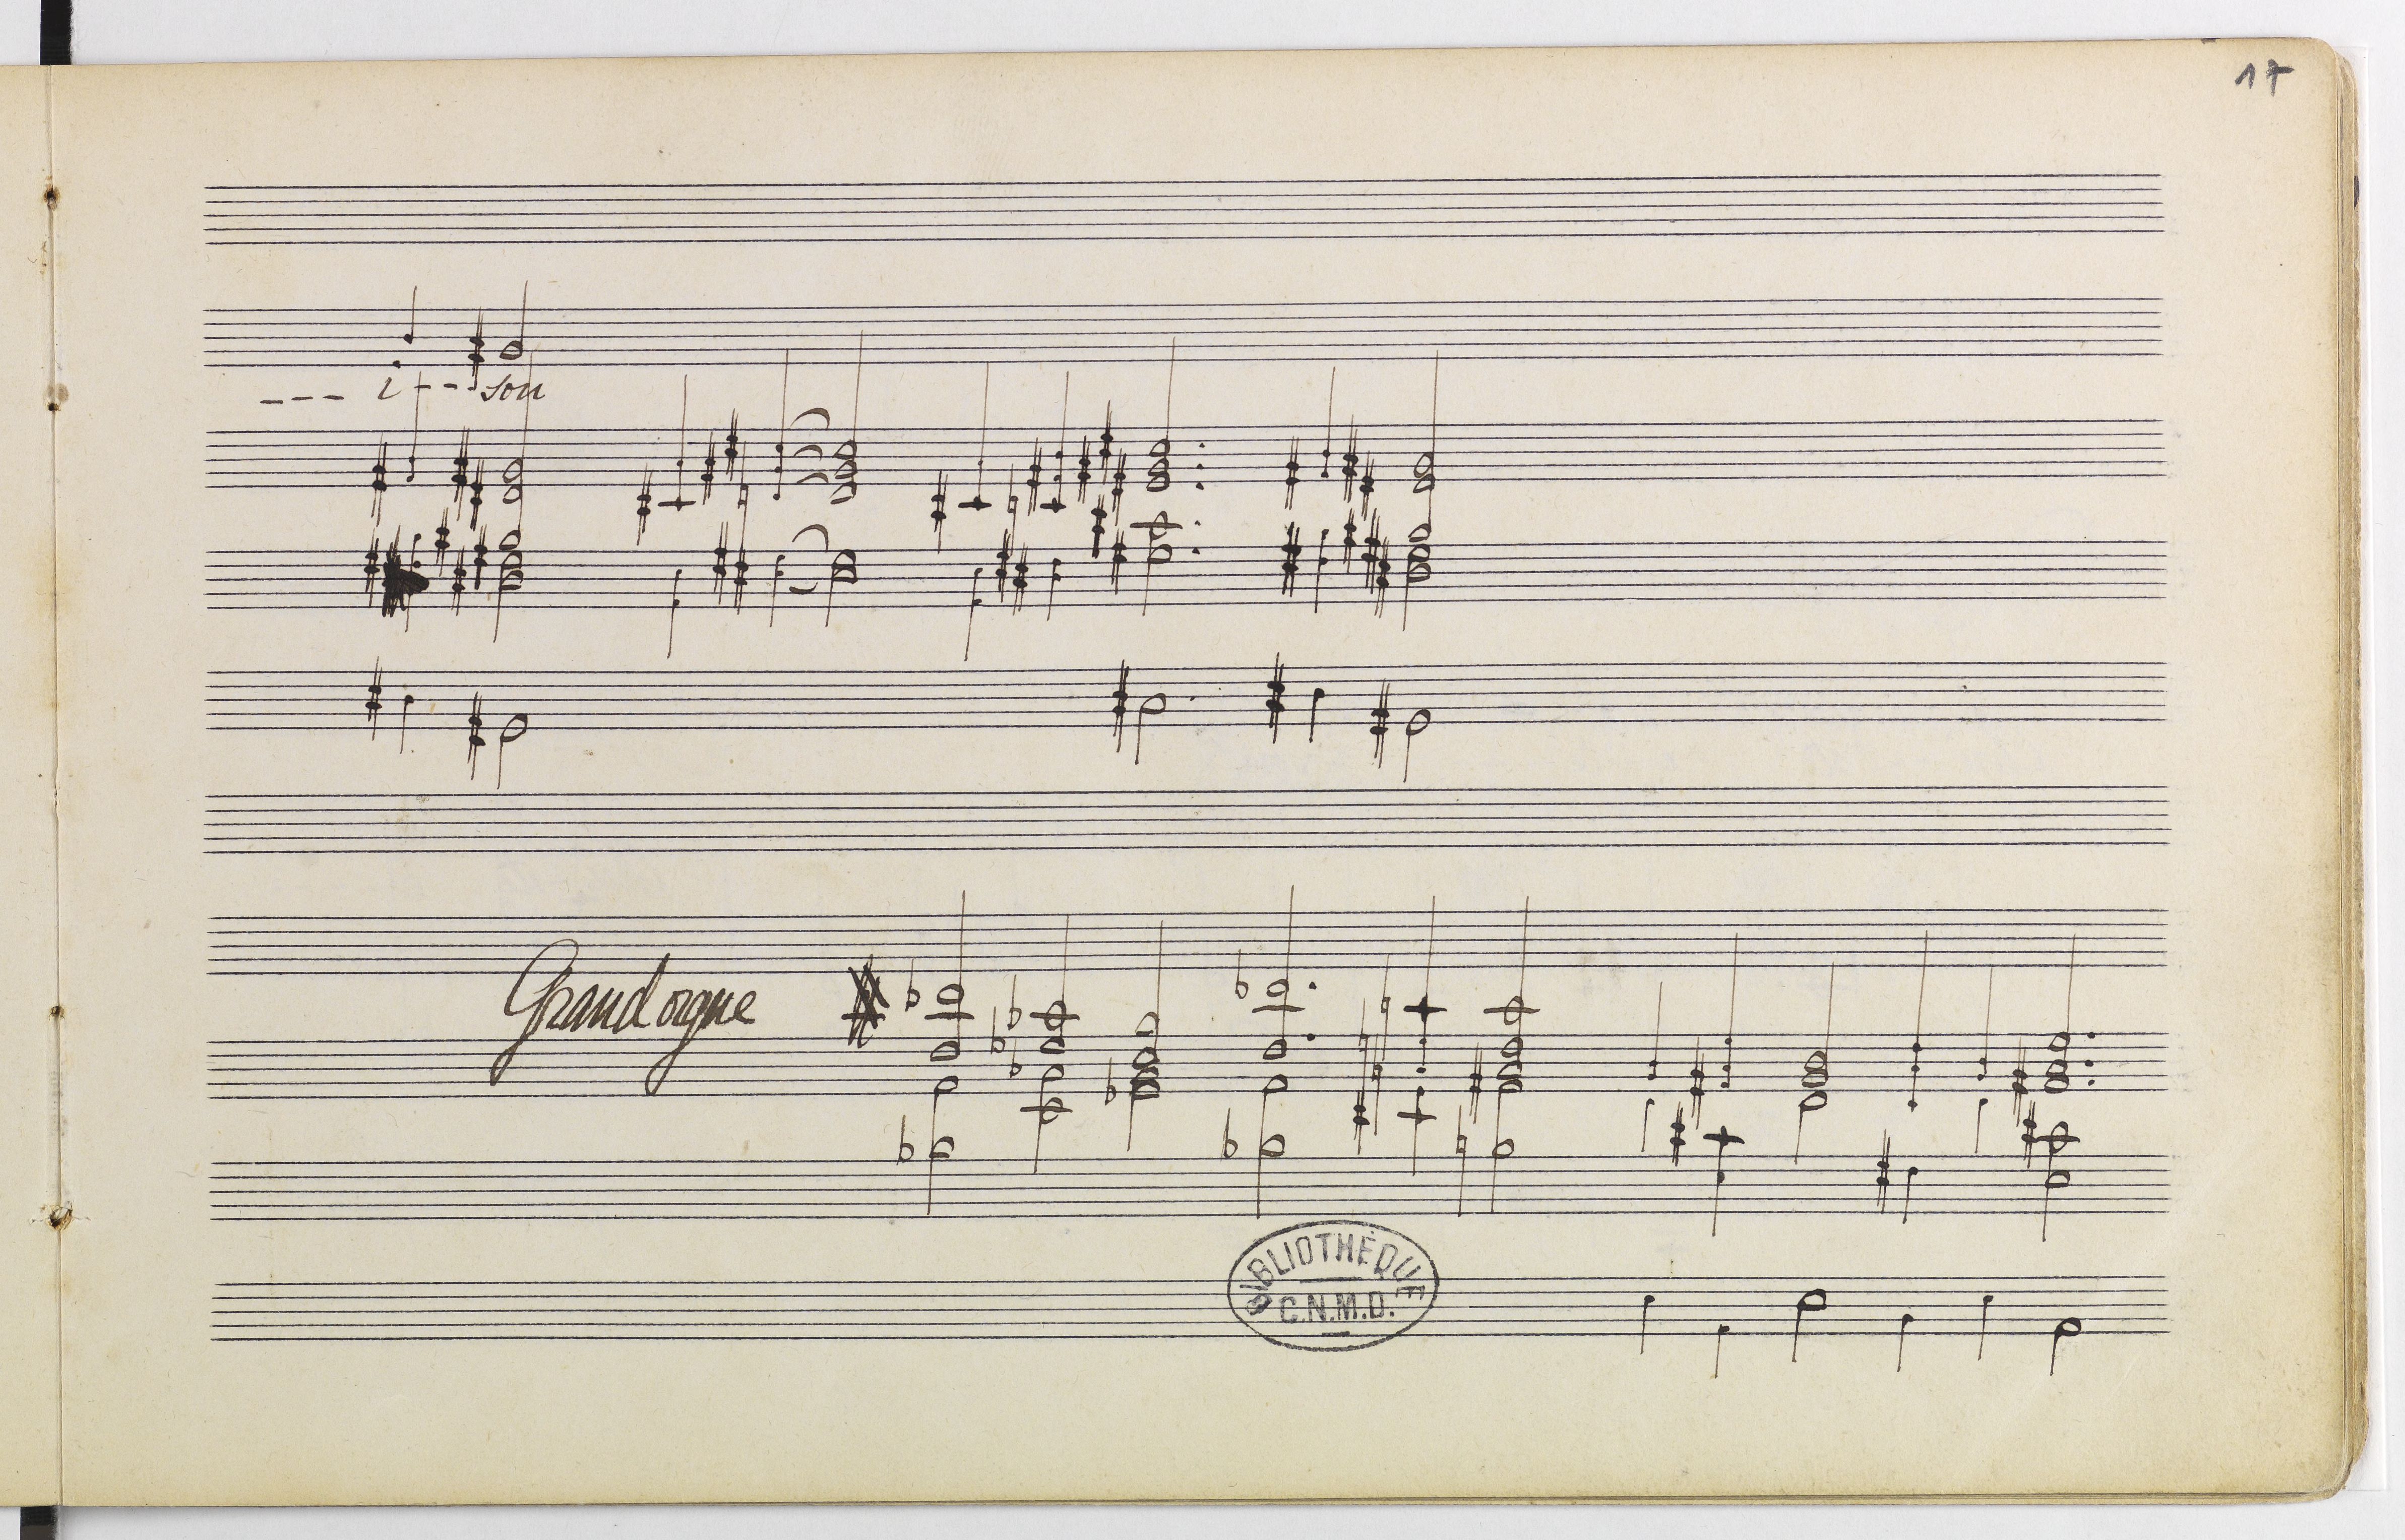 17
--- i --- son
Grand orgue
BIBLIOTHÈQUE
C.N.M.D.